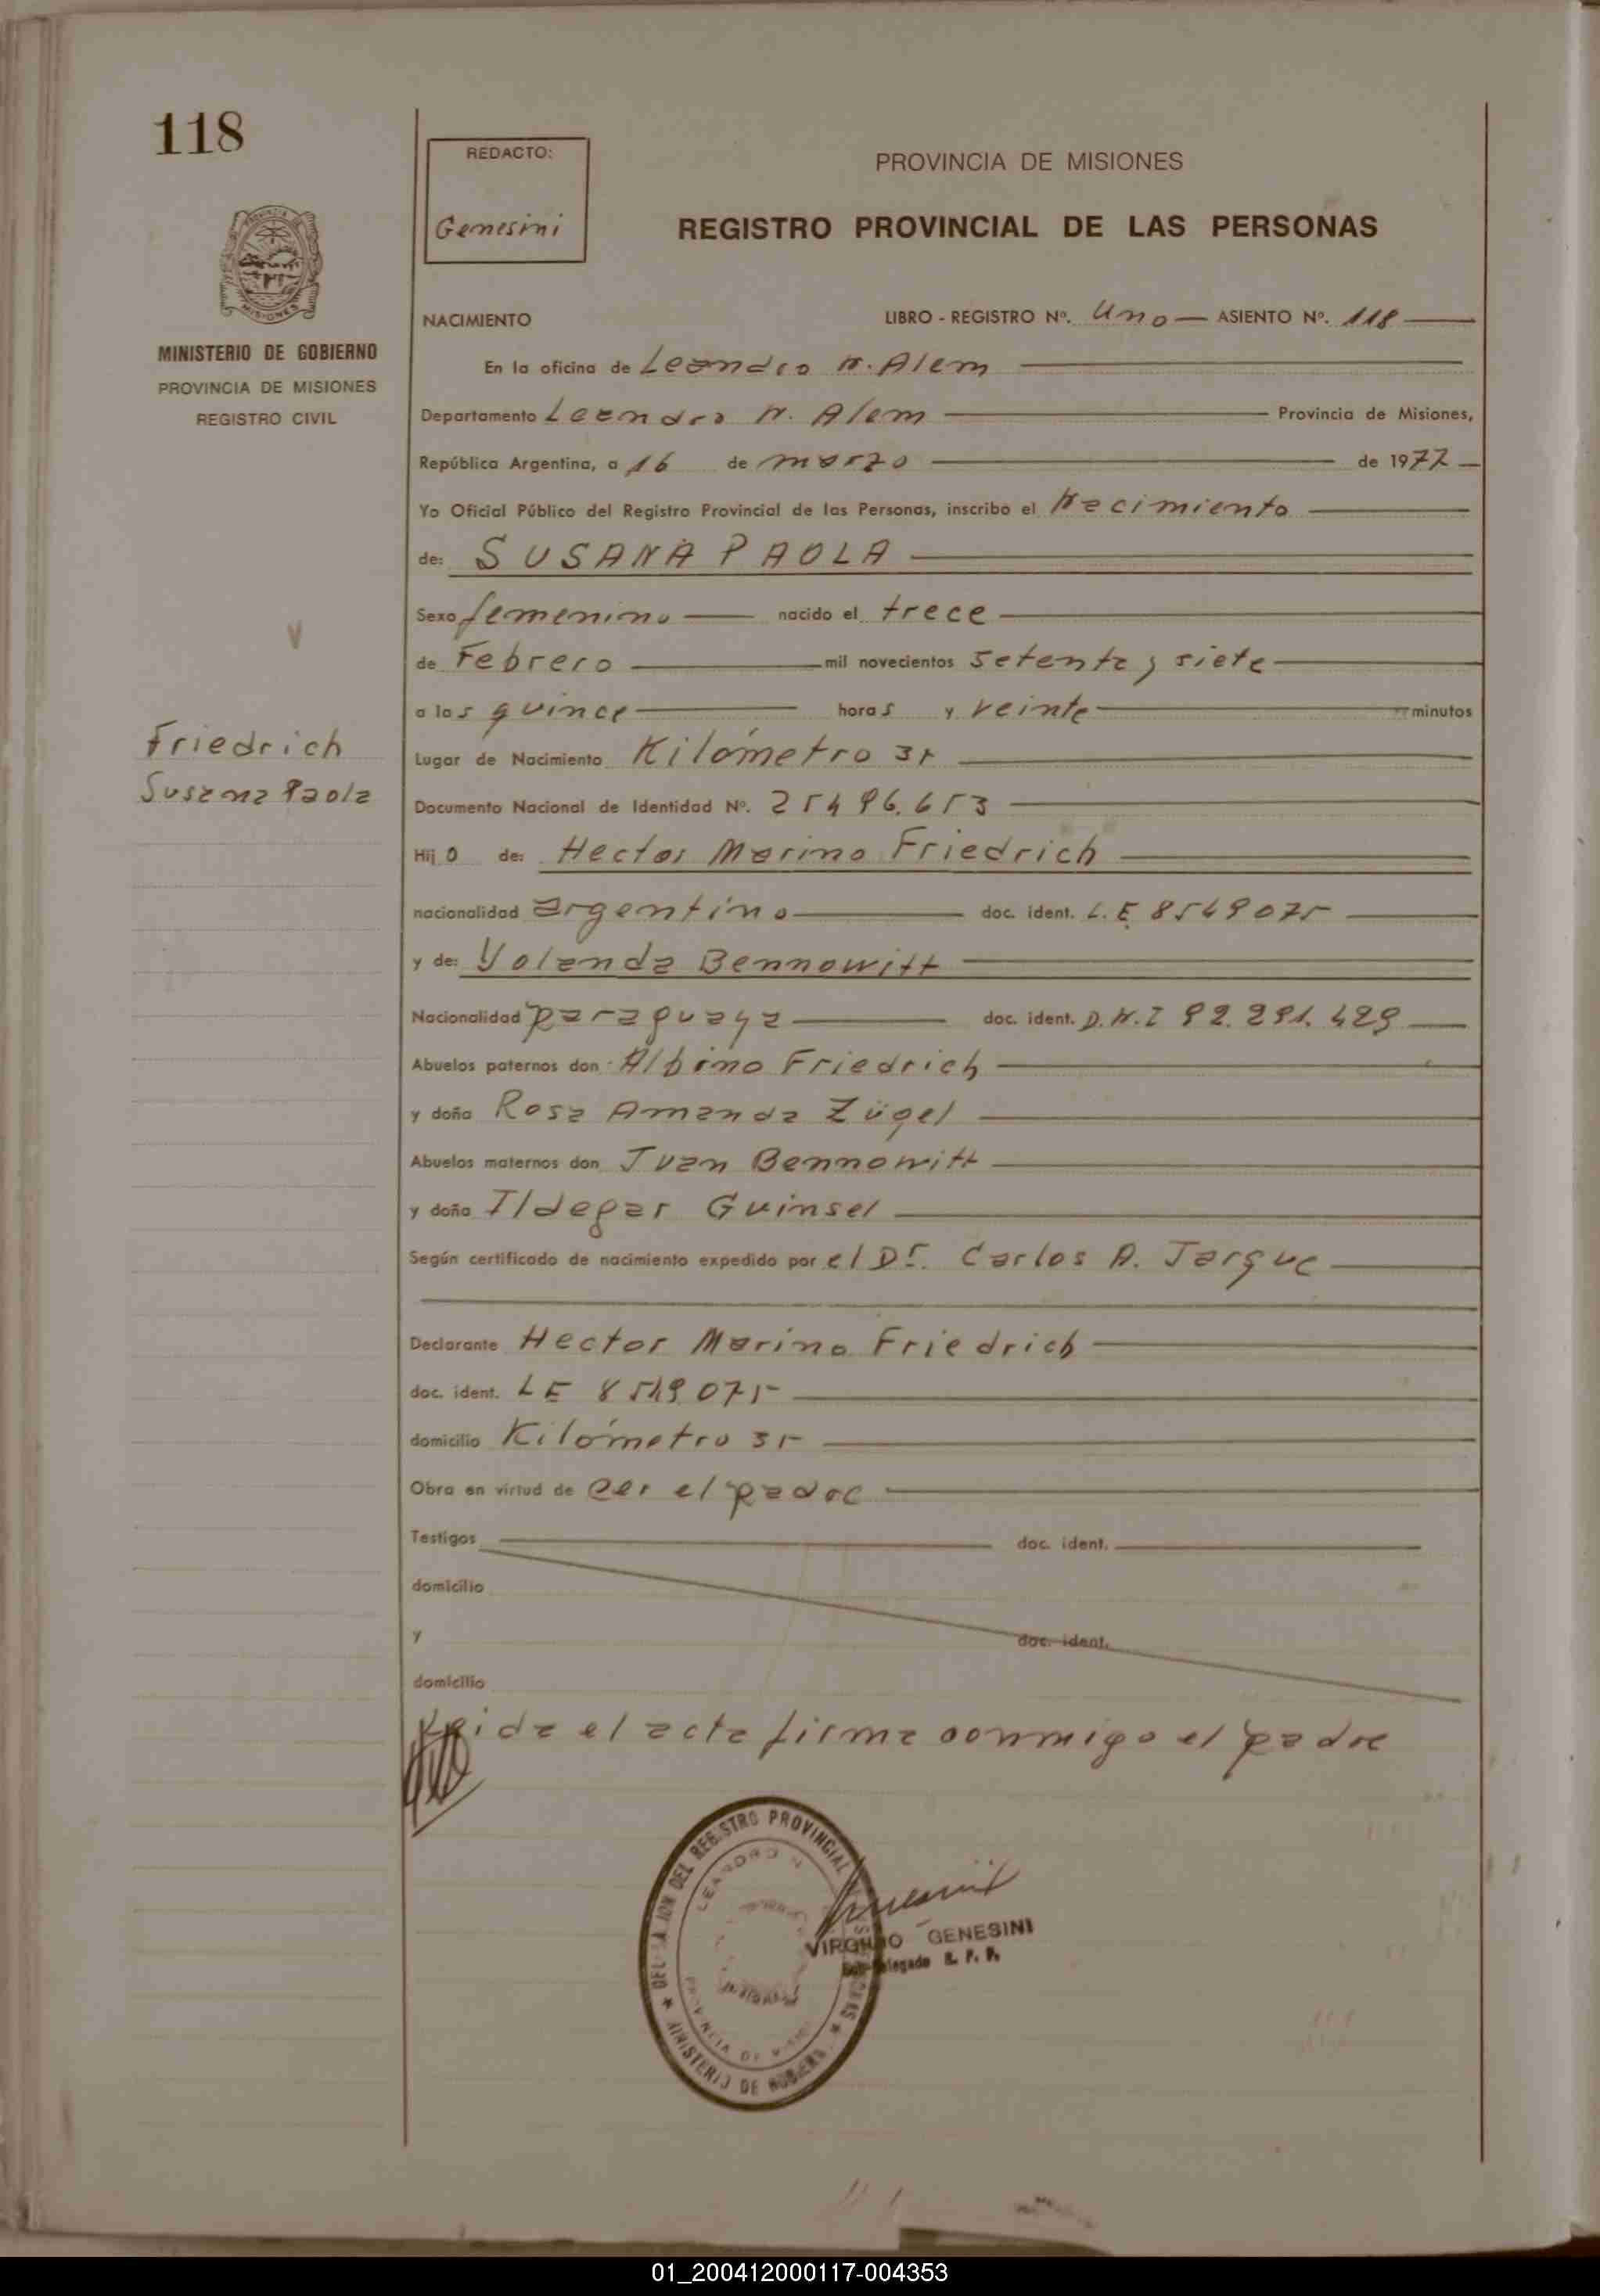 118
REDACTO:
Genesini
PROVINCIA DE MISIONES
REGISTRO PROVINCIAL DE LAS PERSONAS
MINISTERIO DE GOBIERNO
PROVINCIA DE MISIONES
REGISTRO CIVIL
NACIMIENTO LIBRO - REGISTRO Nº. Uno ASIENTO Nº. 118
En la oficina de Leandro N. Alem
Departamento Leandro N. Alem Provincia de Misiones,
República Argentina, a 16 de marzo de 1977
Yo Oficial Público del Registro Provincial de las Personas, inscribo el Nacimiento
de: SUSANA PAOLA
Sexo femenino nacido el trece
de Febrero mil novecientos setenta y siete
a las quince horas y veinte minutos
Friedrich
Susana Paola
Lugar de Nacimiento Kilómetro 35
Documento Nacional de Identidad Nº. 25496.653
Hijo de: Hector Marino Friedrich
nacionalidad argentino doc. ident. L.E. 8549075
y de: Yolanda Bennowitt
Nacionalidad paraguaya doc. ident. D.N.I 92.291.429
Abuelos paternos don Albino Friedrich
y doña Rosa Amanda Zügel
Abuelos maternos don Juan Bennowitt
y doña Ildegar Guinsel
Según certificado de nacimiento expedido por el Dr. Carlos A. Jarque
Declarante Hector Marino Friedrich
doc. ident. LE 8549075
domicilio Kilómetro 35
Obra en virtud de ser el padre
Testigos doc. ident.
domicilio
y doc. ident.
domicilio
Leida el acta firma conmigo el padre
DELEGACION DEL REGISTRO PROVINCIAL
LEANDRO N
PROVINCIA DE
MINISTERIO DE GOBIERNO
VIRGILIO GENESINI
Sub-Delegado R. P. P.
01_200412000117-004353